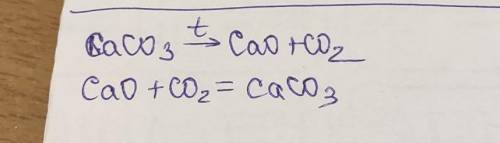 CaCO₃ →ᵗ CaO + CO₂
CaO + CO₂ = CaCO₃